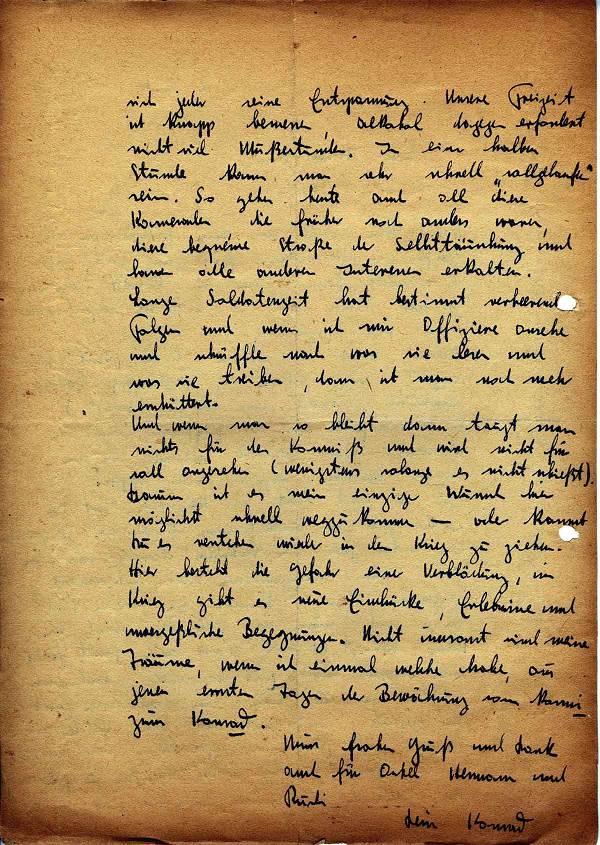 sich jeder seine Entspannung. Unsere Freizeit
ist knapp bemessen, Alkohol dagegen erfordert
nicht viel Mußestunden. In einer halben
Stunde kann man sehr schnell „vollgelaufen"
sein. So gehen heute auch all diese
Kameraden die früher noch anders waren,
diese bequeme Straße der Selbsttäuschung und
lassen alle anderen Interessen erkalten.
Lange Soldatenzeit hat bestimmt verheerende
Folgen und wenn ich mir Offiziere ansehe
und schnüffle nach was sie lesen und
was sie treiben, dann ist man noch mehr
erschüttert.
Und wenn man so bleibt dann taugt man
nichts für den Kommiß und wird nicht für
voll angesehen (wenigstens solange es nicht schießt).
Darum ist es mein einziger Wunsch hier
möglichst schnell wegzukommen — oder kannst
Du es verstehen wieder in den Krieg zu ziehen.
Hier besteht die Gefahr einer Verblödung, im
Krieg gibt es neue Eindrücke, Erlebnisse und
unvergeßliche Begegnungen. Nicht umsonst sind meine
Träume, wenn ich einmal welche habe, aus
jenen ernsten Tagen der Bewährung vom
zum Konrad.
Nun frohen Gruß und Dank
auch für Onkel Hermann und
Dein Konrad